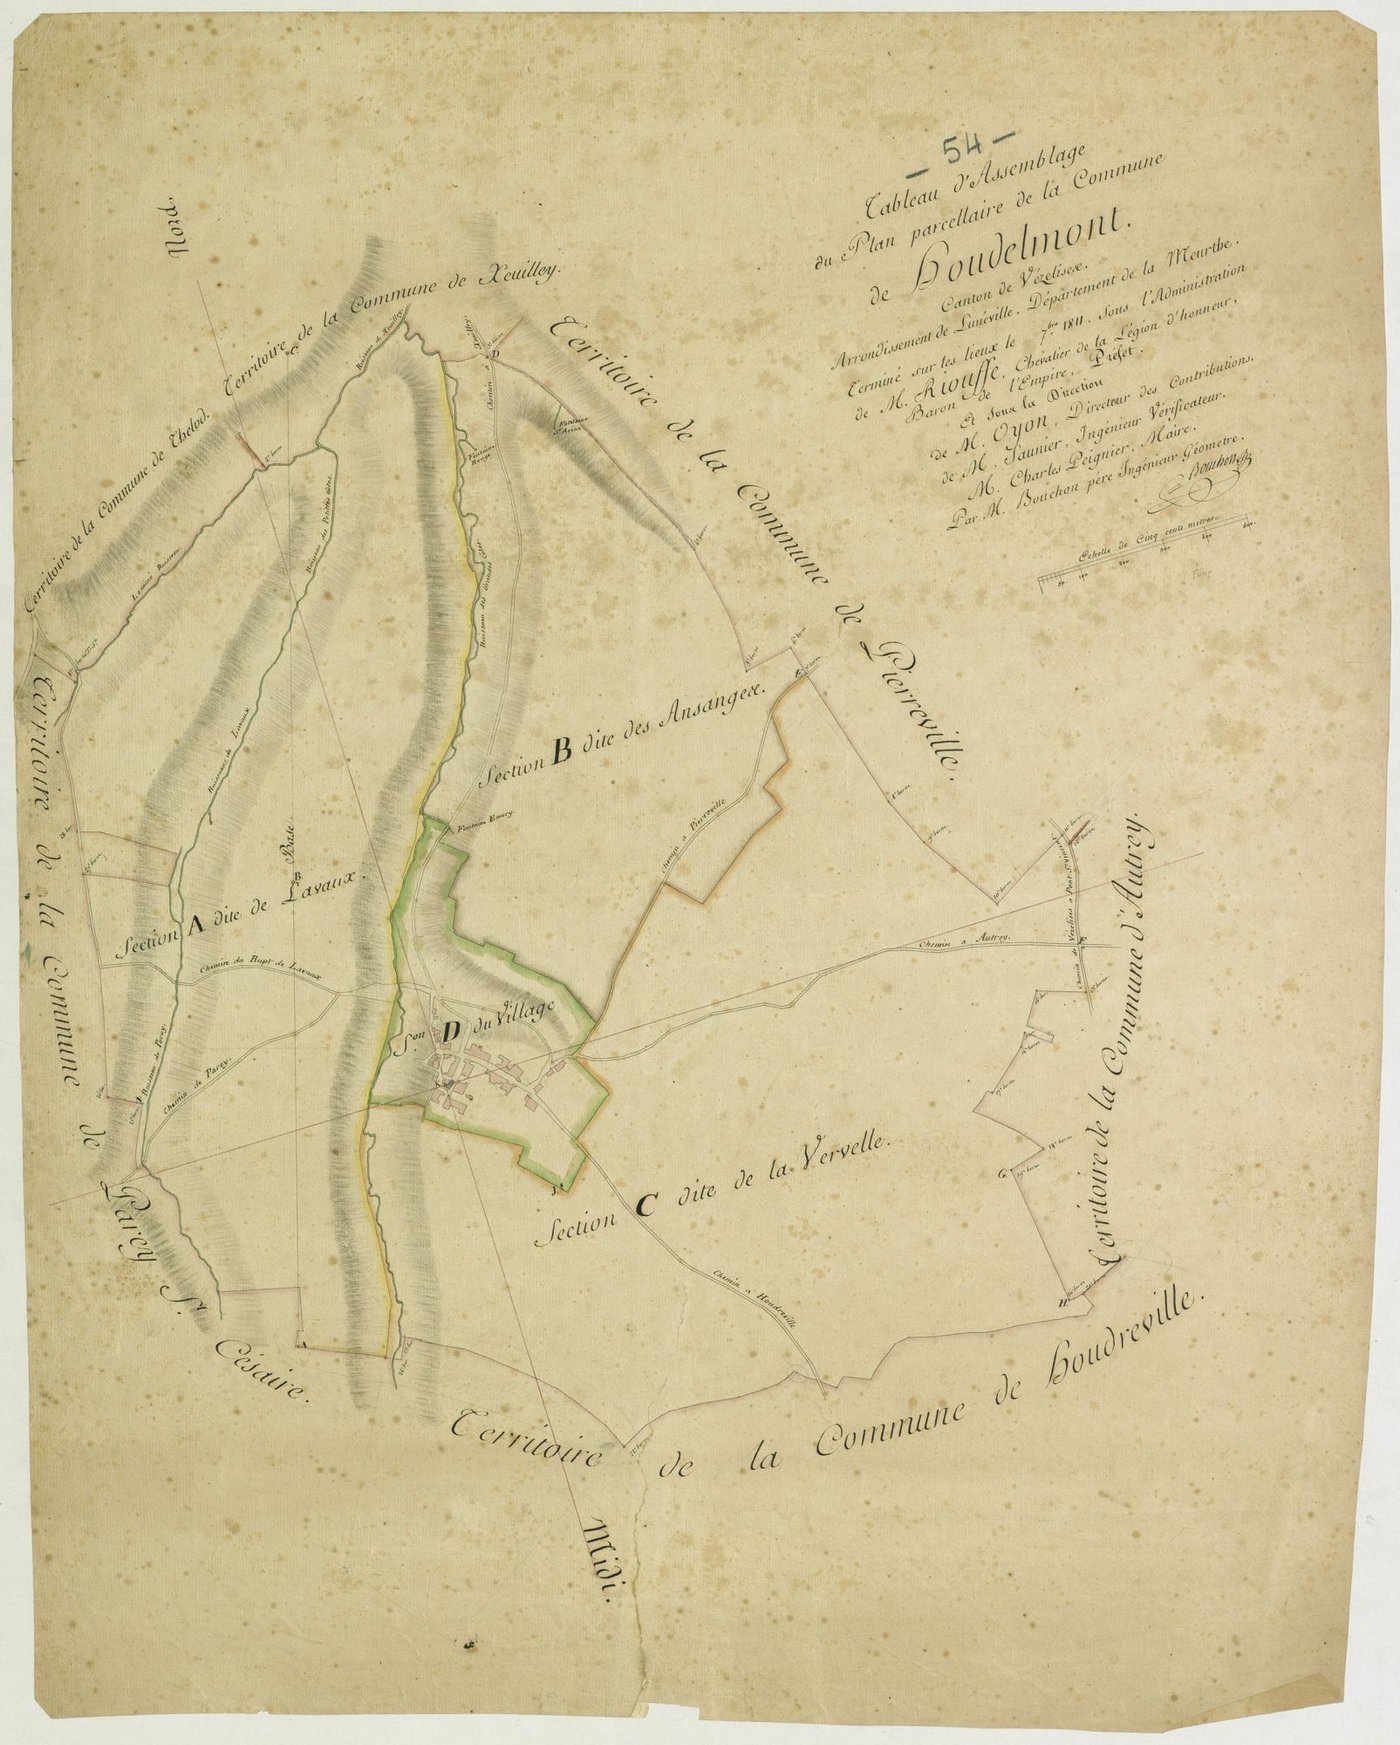 — 54 —
Tableau d'Assemblage
du Plan parcellaire de la Commune
de Houdelmont.
Canton de Vézelise.
Arrondissement de Lunéville. Département de la Meurthe.
Terminé sur les lieux le 7.bre 1811. Sous l'Administration
de M. Riouffe, Chevalier de la Légion d'honneur,
Baron de l'Empire, Préfet.
Et Sous la Direction
de M. Oyon, Directeur des Contributions.
de M. Saunier, Ingénieur Vérificateur.
M. Charles Peignier, Maire.
Par M. Bouchon père Ingénieur Géometre.
Bouchon
Echelle de Cinq cents metres.
Nord.
Territoire de la Commune de Xeuilley.
Territoire de la Commune de Thelod.
Territoire de la Commune de Pierreville.
Territoire de la Commune de Parey St. Césaire.
Territoire de la Commune d'Autrey.
Territoire de la Commune de Houdreville.
Midi.
Ruisseau de Xeuilley
Chemin a Xeuilley
Fontaine Rouge
Ruisseau des Petites Cotes
Ruisseau des Grandes Cotes
Ruisseau de Lavaux
Section B dite des Ansanges.
Fontaine Emery
Chemin a Pierreville
Base
B
Section A dite de Lavaux.
Chemin du Rupt de Lavaux
Chemin a Autrey.
Chemin de Vézelise a Pont St Vincent
Son D du Village
Ruisseau de Parey
Chemin de Parey.
Section C dite de la Vervelle.
Chemin a Houdreville
C
D
E
F
G
H